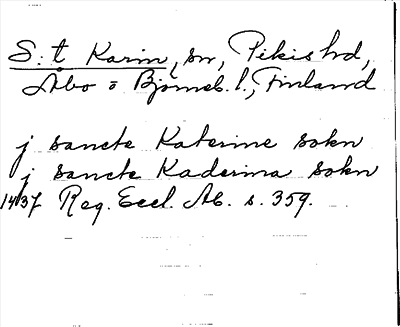 S:t Karin, sn, Pikis hd,
Åbo o Björneb. l., Finland
j sancte Katerine sokn
j sancte Kaderina sokn
1437 Reg. Eccl. Ab. s. 359.